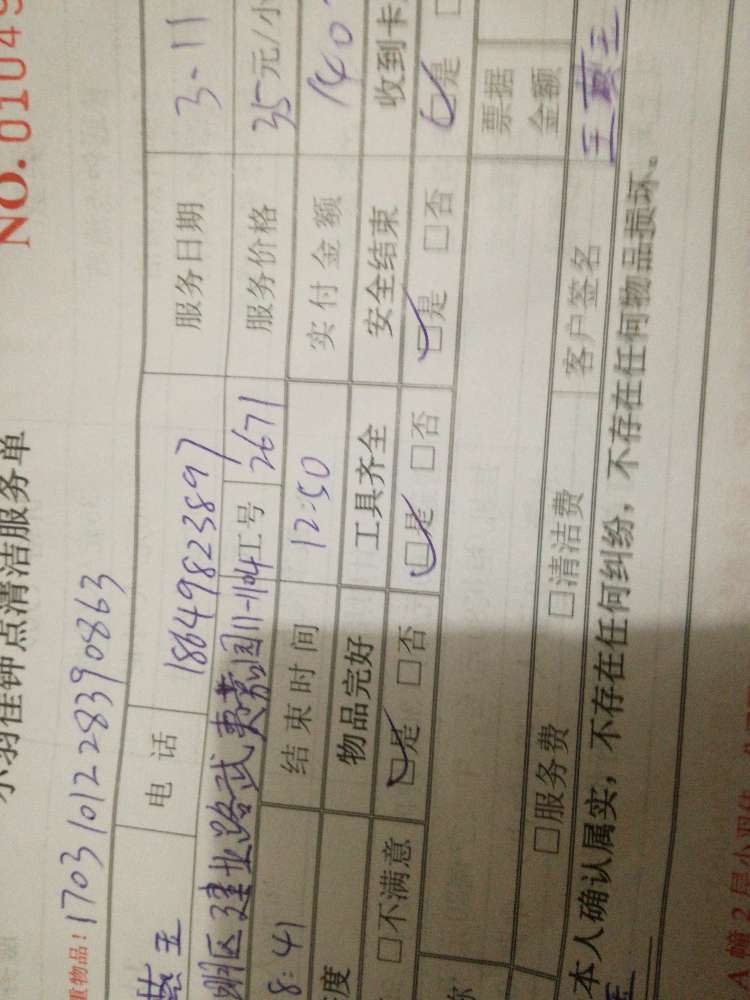 NO.01049
小羽佳钟点清洁服务单
重物品！ 1703101228390863
电 话 18649823897 服务日期 3-11
明区建业路武夷嘉园11-1104 工号 2671 服务价格 35元/小
8:41 结 束 时 间 12:50 实 付 金 额 140
度 物品完好 工具齐全 安全结束 收到卡
□不满意 □是 □否 □是 □否 □是 □否 □是
票据
金额
□服务费 □清洁费 客户签名
本人确认属实，不存在任何纠纷，不存在任何物品损坏。